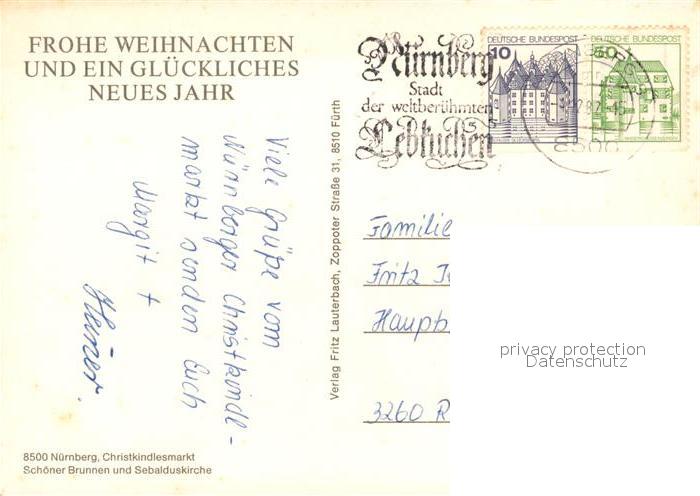 FROHE WEIHNACHTEN
UND EIN GLÜCKLICHES
NEUES JAHR
Viele Grüße vom
Nürnberger Christkindl-
markt senden Euch
Margit +
Heiner.
8500 Nürnberg, Christkindlesmarkt
Schöner Brunnen und Sebalduskirche
Verlag Fritz Lauterbach, Zoppoter Straße 31, 8510 Fürth
Nürnberg
Stadt
der weltberühmten
Lebkuchen
DEUTSCHE BUNDESPOST
10
DEUTSCHE BUNDESPOST
50
8500
Familie
Fritz
Hauptb
3260 R
privacy protection
Datenschutz